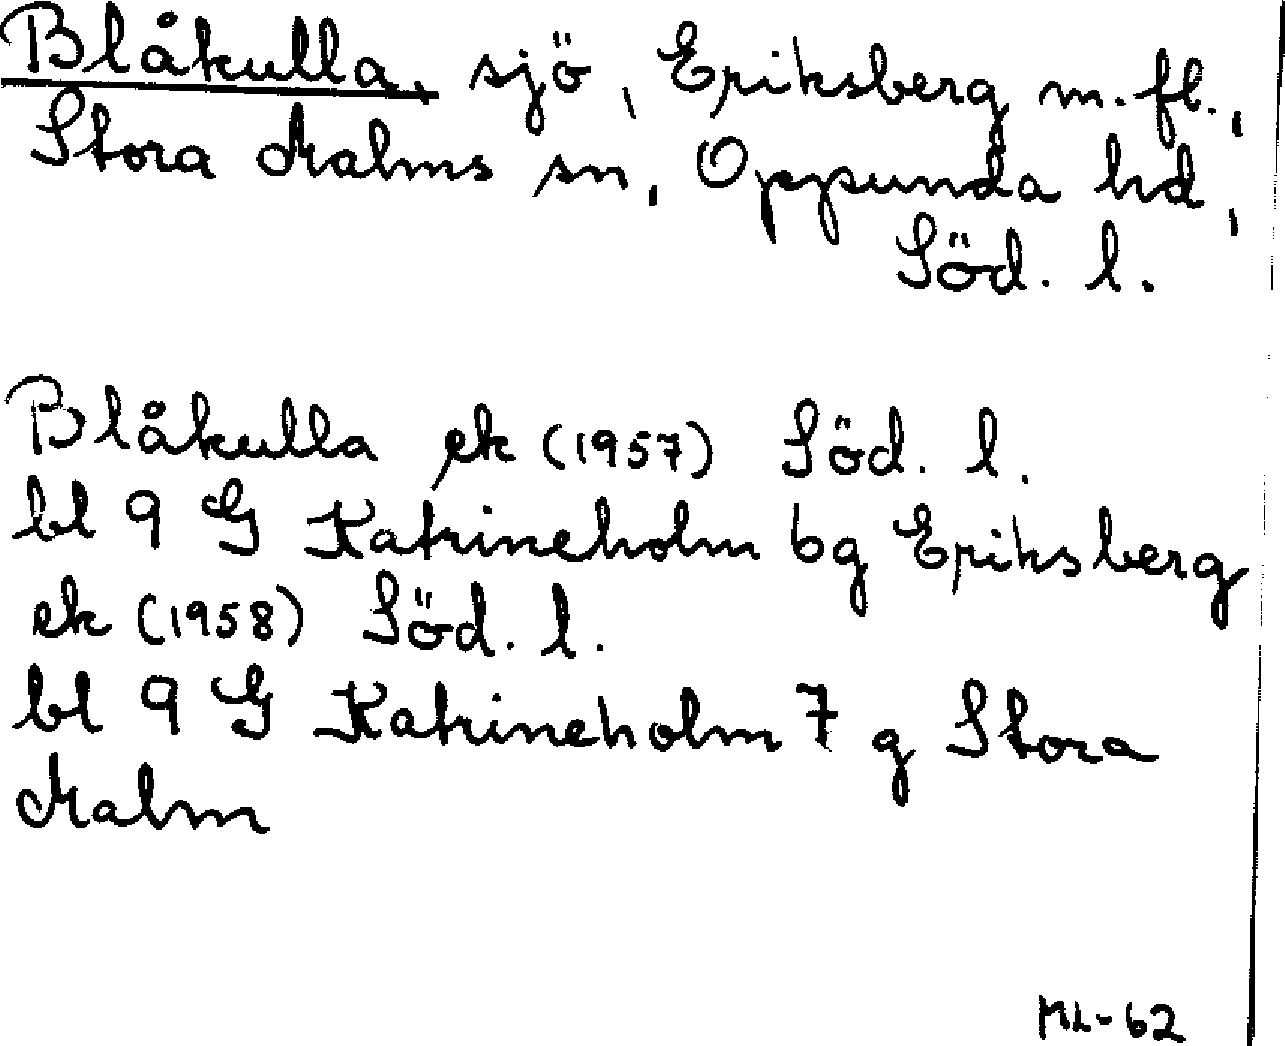 Blåkulla, sjö, Eriksberg m. fl.,
Stora Malms sn, Oppunda hd,
Söd. l.
Blåkulla ek (1957) Söd. l.
bl 9 G Katrineholm 6g Eriksberg
ek (1958) Söd. l.
bl 9 G Katrineholm 7 g Stora
Malm
ML-62